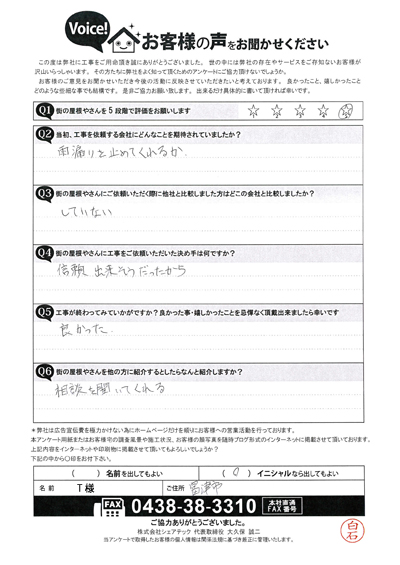 Voice!
お客様の声をお聞かせください
この度は弊社に工事をご用命頂き誠にありがとうございました。世の中には弊社の存在やサービスをご存知ないお客様が
沢山いらっしゃいます。その方たちに弊社をよく知って頂くためのアンケートにご協力頂けないでしょうか。
お客様のご意見をお聞かせいただき今後の活動に反映させていただきたいと考えております。良かったこと、嬉しかったこと
どのような些細な事でも結構です。是非ご協力お願い致します。出来るだけ具体的に書いて頂ければ幸いです。
Q1 街の屋根やさんを5段階で評価をお願いします
Q2 当初、工事を依頼する会社にどんなことを期待されていましたか?
雨漏りを止めてくれるか、
Q3 街の屋根やさんにご依頼いただく際に他社と比較しました方はどこの会社と比較しましたか?
していない
Q4 街の屋根やさんに工事をご依頼いただいた決め手は何ですか?
信頼出来そうだったから
Q5 工事が終わってみていかがですか?良かった事・嬉しかったことを忌憚なく頂戴出来ましたら幸いです
良かった.
Q6 街の屋根やさんを他の方に紹介するとしたらなんと紹介しますか?
相談を聞いてくれる
*弊社は広告宣伝費を極力かけない為にホームページだけを頼りにお客様への営業活動を行っております。
本アンケート用紙またはお客様宅の調査風景や施工状況、お客様の顔写真を随時ブログ形式のインターネットに掲載させて頂いております。
上記内容をインターネットや印刷物に掲載させて頂いてもよろしいでしょうか?
下記の中から〇印をお付け下さい。
( )名前を出してもよい (○)イニシャルなら出してもよい
名前 T様 ご住所 富津市
FAX 0438-38-3310 本社直通FAX番号
ご協力ありがとうございました。
株式会社シェアテック 代表取締役 大久保 誠二
当アンケートで取得したお客様の個人情報は関係法規に基づき厳正に管理いたします。
白石